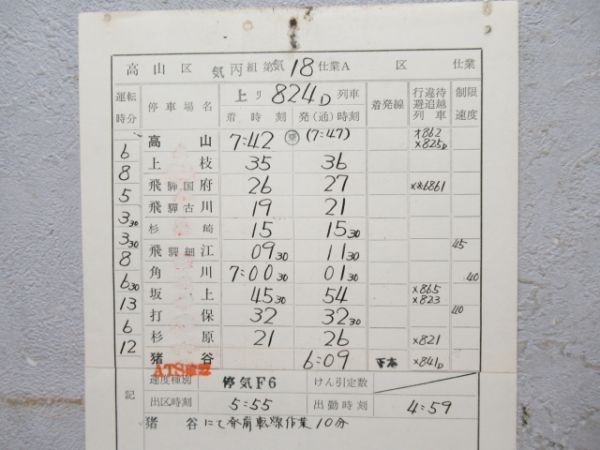 高山区 気丙組第気18仕業A 区 仕業
運転時分 停車場名 上り824D列車 着発線 行違待避追越列車 制限速度
着時刻 発(通)時刻
高山 7:42 (7:47) ×862 ×825D
6
上枝 35 36
8
飛驒国府 26 27 ××6861
5
飛驒古川 19 21
3 30
杉崎 15 15 30
3 30
飛驒細江 09 30 11 30 45
8
角川 7:00 30 01 30 40
6 30
坂上 45 30 54 ×865 ×823
13
打保 32 32 30 40
6
杉原 21 26 ×821
12
猪谷 6:09 下本 ×841D
ATS確認
記 速度種別 停気F6 けん引定数
出区時刻 5:55 出勤時刻 4:59
猪谷にて 転線作業10分